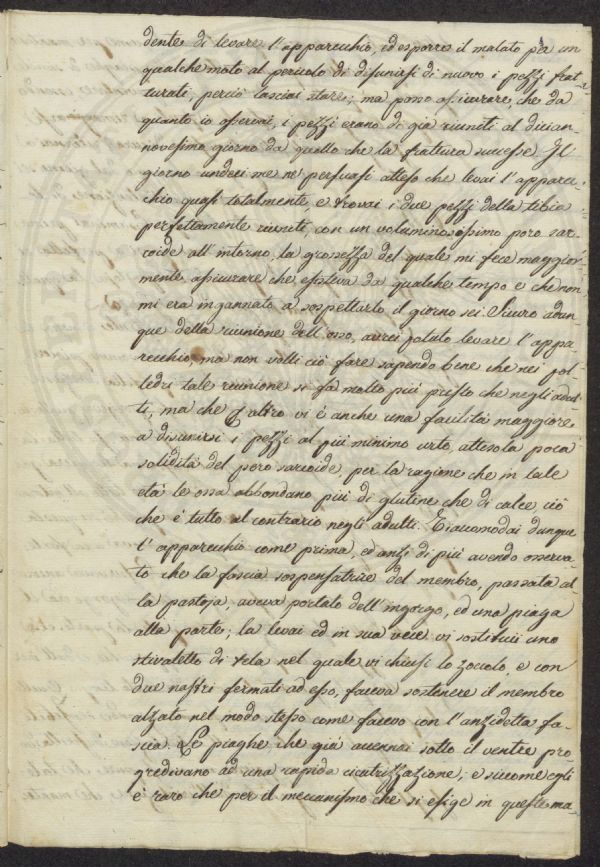 dente di levare l'apparecchio, ed esporre il malato per un
qualche moto al pericolo di disunirsi di nuovo i pezzi frat-
turati, perciò lasciai stare; ma posso assicurare, che da
quanto io osservai, i pezzi erano di già riuniti al dician-
novesimo giorno da quello che la frattura successe. Il
giorno undeci me ne persuasi atteso che levai l'apparec-
chio quasi totalmente e trovai i due pezzi della tibia
perfettamente riuniti, con un voluminosissimo poro sar-
coide all'intorno, la grossezza del quale mi fece maggior-
mente assicurare che esisteva da qualche tempo e che non
mi era ingannato a sospettarlo il giorno sei. Sicuro adun-
que della riunione dell'osso, avrei potuto levare l'appa-
recchio, ma non volli ciò fare sapendo bene che nei pol-
ledri tale riunione si fà molto più presto che negli adul-
ti, ma che d'altro vi è anche una facilità maggiore
a disunirsi i pezzi al più minimo urto, attesa la poca
solidità del poro sarcoide, per la ragione che in tale
età le ossa abbondano più di glutine che di calce, ciò
che è tutto al contrario negli adulti. Riaccomodai dunque
l'apparecchio come prima, ed anzi di più avendo osserva-
to che la fascia sospensatrice del membro, passata al
la pastoja, aveva portato dell'ingorgo, ed una piaga
alla parte; la levai ed in sua vece vi sostituii uno
stivaletto di tela nel quale vi chiusi lo zoccolo, e con
due nastri fermati ad esso, faceva sostenere il membro
alzato nel modo stesso come facevo con l'anzidetta fa-
scia. Le piaghe che già accennai sotto il ventre pro-
gredivano ad una rapida cicatrizzazione, e siccome egli
è raro che per il meccanismo che si esige in queste ma-